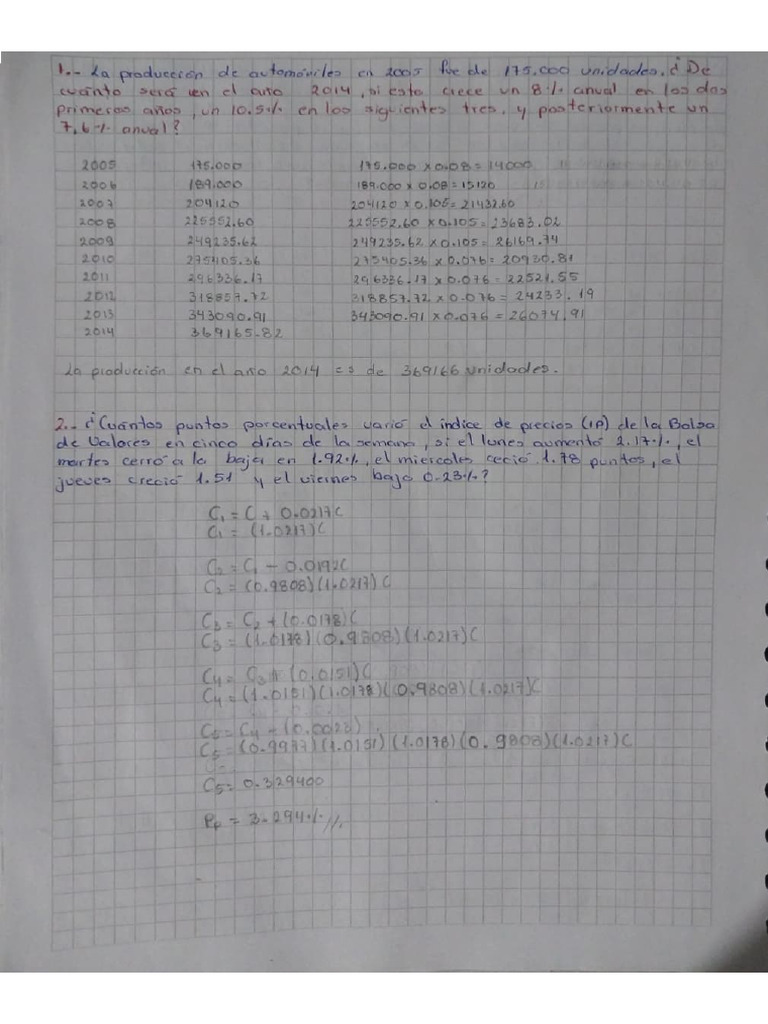 1.- La producción de automóviles en 2005 fue de 175.000 unidades. ¿De
cuánto será en el año 2014, si esto crece un 8% anual en los dos
primeros años, un 10.5% en los siguientes tres, y posteriormente un
7,6% anual?
2005 175.000 175.000 x 0.08 = 14000
2006 189.000 189.000 x 0.08 = 15120
2007 204120 204120 x 0.105 = 21432.60
2008 225552.60 225552.60 x 0.105 = 23683.02
2009 249235.62 249235.62 x 0.105 = 26169.74
2010 275405.36 275405.36 x 0.076 = 20930.81
2011 296336.17 296336.17 x 0.076 = 22521.55
2012 318857.72 318857.72 x 0.076 = 24233.19
2013 343090.91 343090.91 x 0.076 = 26074.91
2014 369165.82
La producción en el año 2014 es de 369166 unidades.
2.- ¿Cuántos puntos porcentuales varió el índice de precios (IP) de la Bolsa
de Valores en cinco días de la semana, si el lunes aumentó 2.17%, el
martes cerró a la baja en 1.92%, el miercoles ceció 1.78 puntos, el
jueves creció 1.51 y el viernes bajo 0.23%?
C₁ = C + 0.0217C
C₁ = (1.0217)C
C₂ = C₁ - 0.0192C
C₂ = (0.9808)(1.0217)C
C₃ = C₂ + (0.0178)C
C₃ = (1.0178)(0.9808)(1.0217)C
C₄ = C₃ + (0.0151)C
C₄ = (1.0151)(1.0178)(0.9808)(1.0217)C
C₅ = C₄ - (0.0023)
C₅ = (0.9977)(1.0151)(1.0178)(0.9808)(1.0217)C
C₅ = 0.329400
= 3.294%